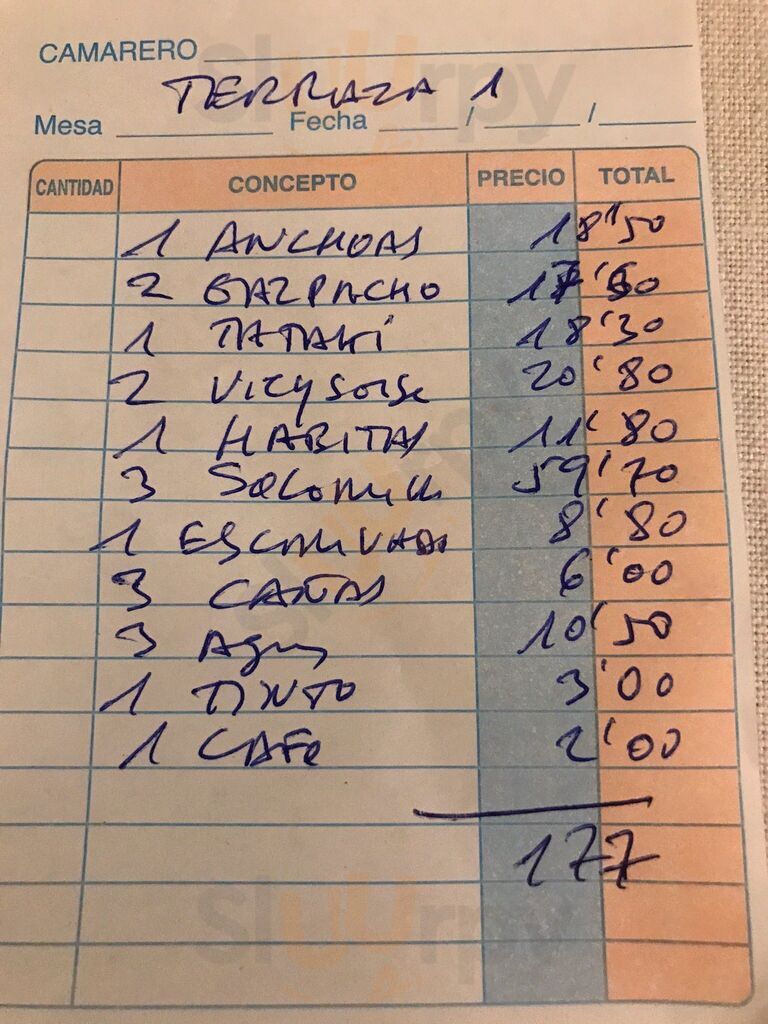 CAMARERO
TERRAZA 1
Mesa Fecha / /
CANTIDAD CONCEPTO PRECIO TOTAL
1 ANCHOAS 18'50
2 GAZPACHO 17'60
1 TATAKI 18'30
2 VICYSOISE 20'80
1 HABITAS 11'80
3 SOLOMILL 59'70
1 ESCALIVADA 8'80
3 CAÑAS 6'00
3 Aguas 10'50
1 TINTO 3'00
1 CAFE 2'00
177
Sluurpy
Sluurpy